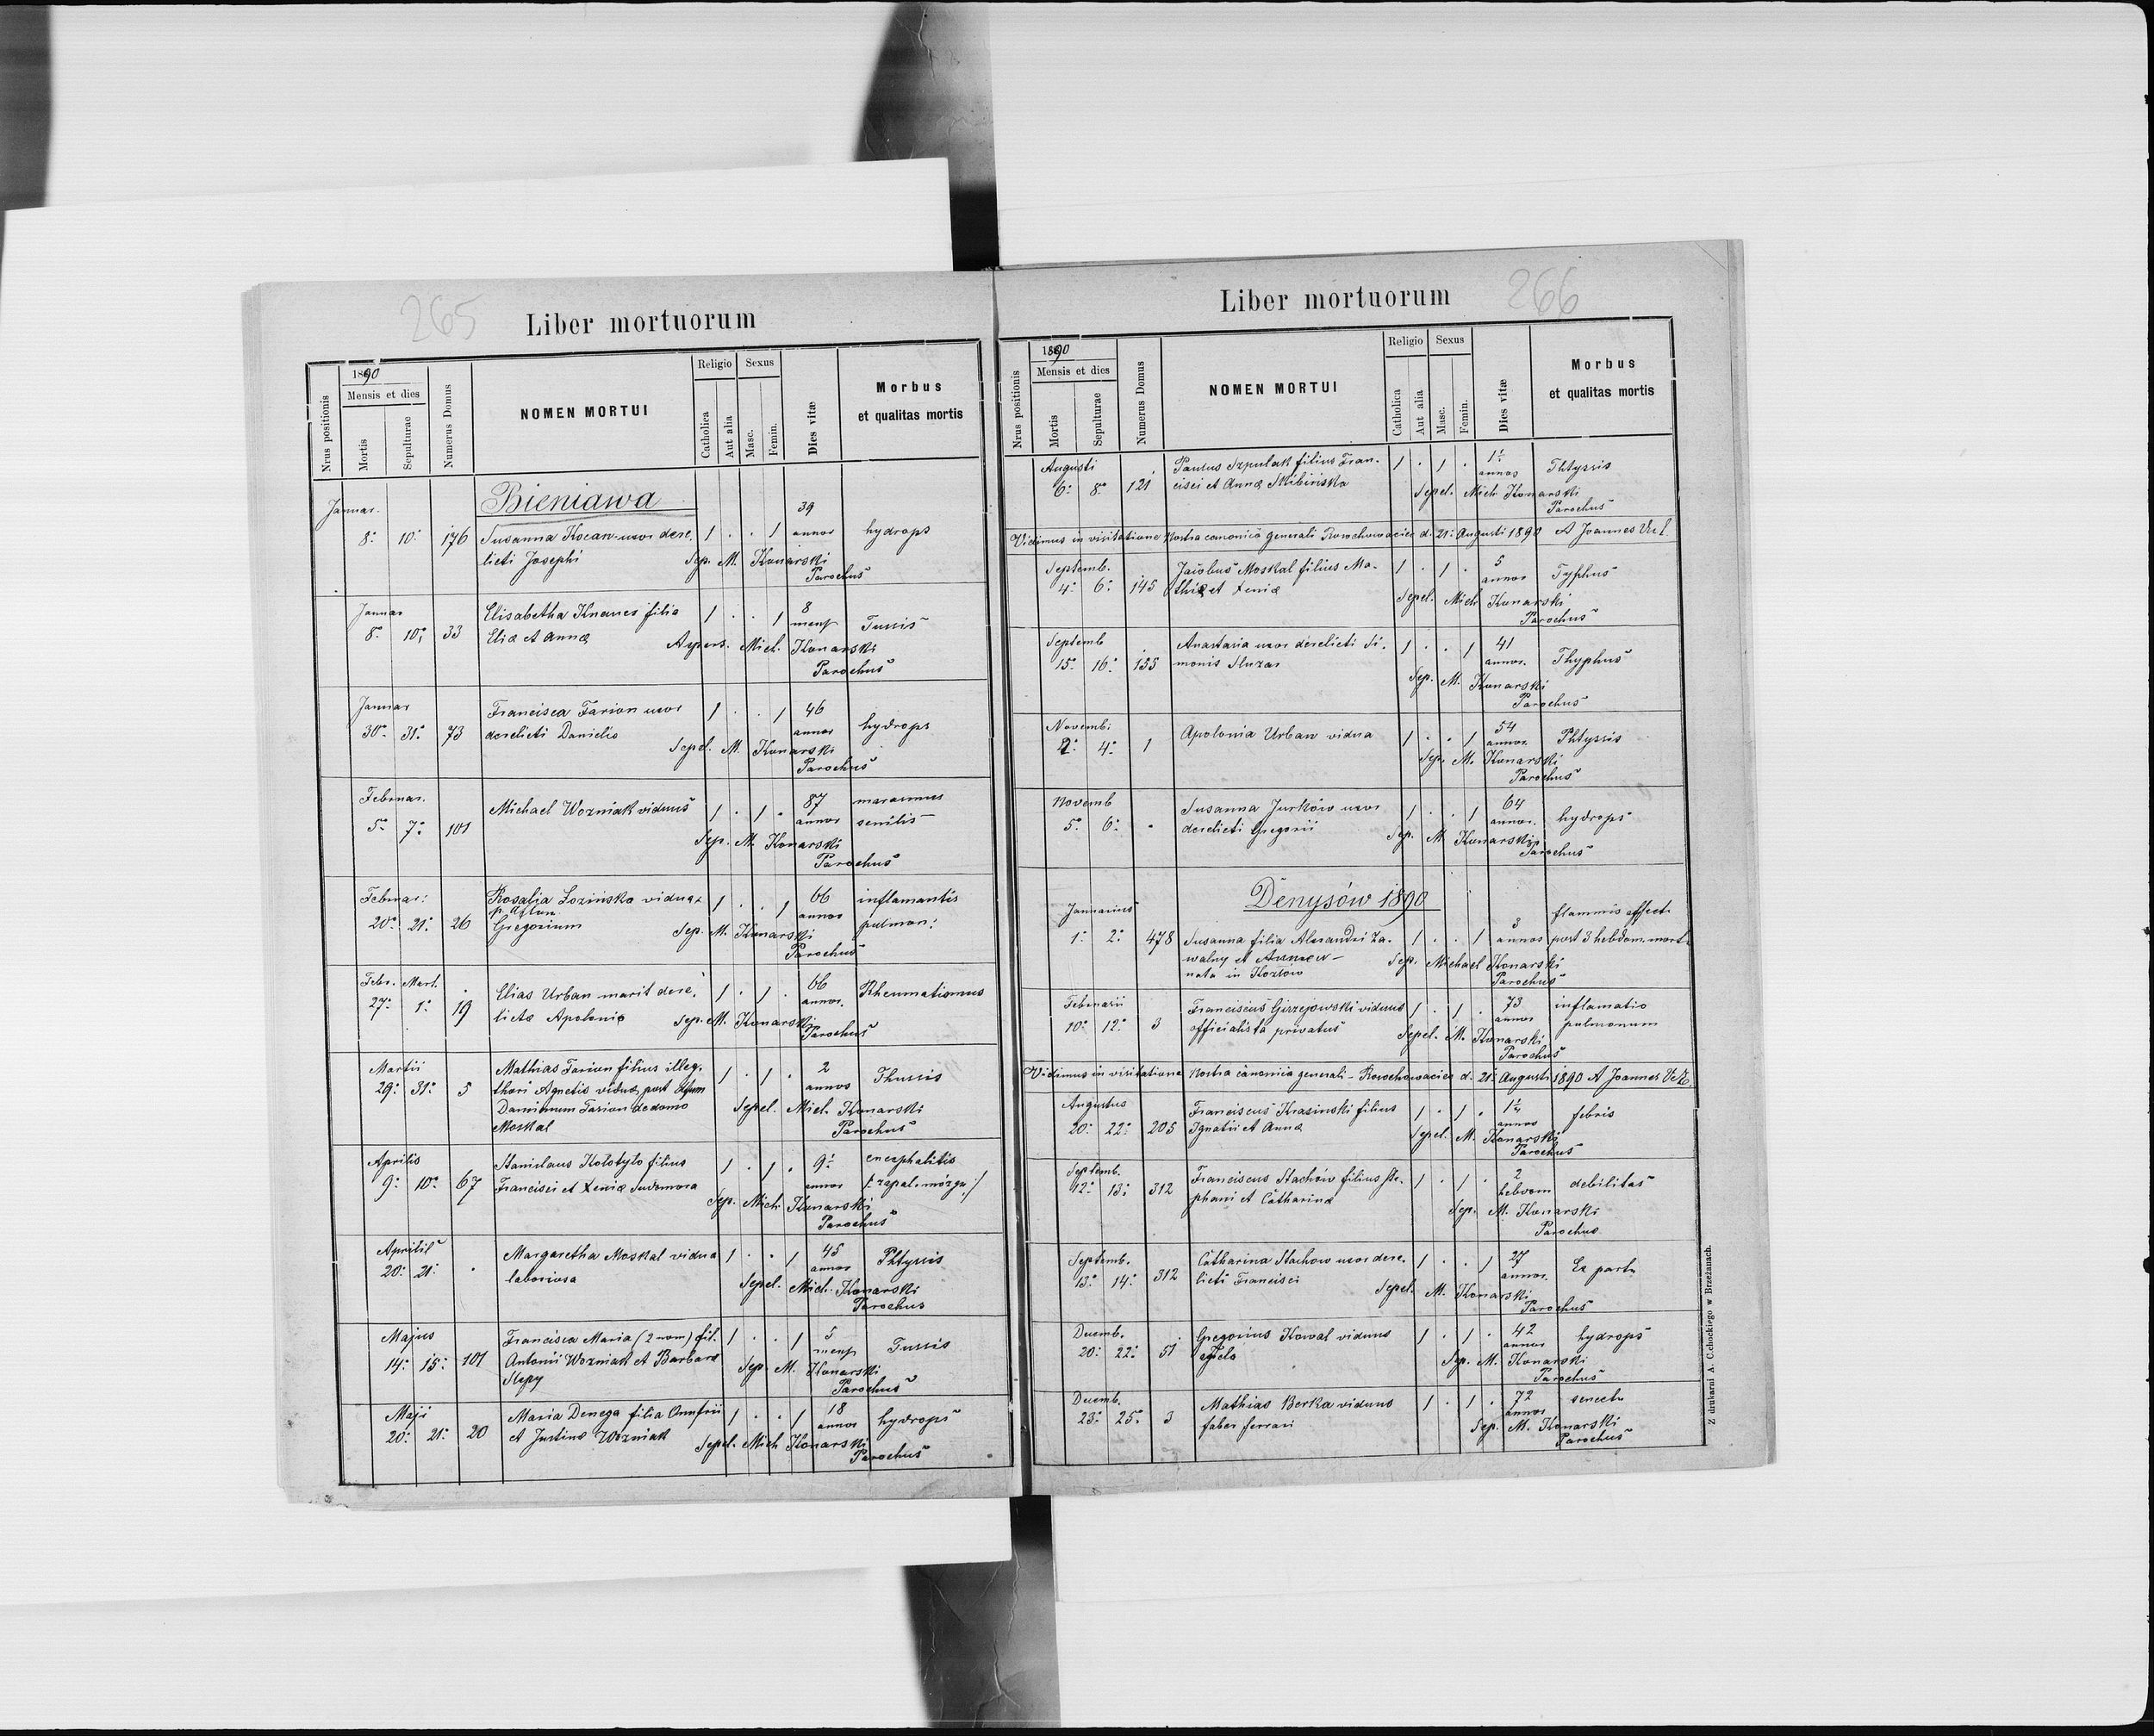 265
Liber mortuorum
Nrus positionis
1890
Mensis et dies
Mortis
Sepulturae
Numerus Domus
NOMEN MORTUI
Religio
Catholica
Aut alia
Sexus
Masc.
Femin.
Dies vitæ
Morbus
et qualitas mortis
Bieniawa
Januar.
39
8. 10. 176 Susanna Kocan uxor dere- 1 . . 1 annor hydrops
licti Josephi Sep. M. Konarski
Parochus
Januar Elisabetha filia 1 . . 1 8
8. 10. 33 Eliæ et Annæ mens Tussis
Aspers. Mich. Konarski
Parochus
Januar Francisca Farion uxor 1 . . 1 46
30. 31. 73 derelicti Danielis annor hydrops
Sepel. M. Konarski
Parochus
Februar. Michael Wozniak viduus 1 . 1 . 87 marasmus
5. 7. 101 annor senilis
Sep. M. Konarski
Parochus
Februar: Rosalia Lozinska vidua 1 . . 1 66 inflamantis
p.
20. 21. 26 Gregorium annor pulmon:
Sep. M. Konarski
Parochus
Febr. Mart. Elias Urban marit dere- 1 . 1 . 66
27. 1. 19 lictæ Apoloniæ annor. Rheumatismus
Sep. M. Konarski
Parochus
Martii Mathias Farion filius illeg. 1 . 1 . 2
29. 31. 5 thori Agnetis viduæ post annos Thussis
Farion de domo Sepel. Mich. Konarski
Moskal Parochus
Aprilis Stanislaus Kolotylo filius 1 . 1 . 9 encephalitis
9. 10. 67 Francisci et Xeniæ Sudomora annor /: zapal. mózgu :/
Sep. Mich Konarski
Parochus
Aprilis Margaretha Moskal vidua 1 . . 1 45
20. 21. . laboriosa annor Phtyssis
Sepel. Mich. Konarski
Parochus
Majus Francisca Maria (2 nom) fil. 1 . . 1 5
14. 15. 101 Antonii Wozniak et Barbaræ mens Tussis
Slepy Sep. M. Konarski
Parochus
Maji Maria Denega filia Onufrii 1 . . 1 18
20. 21. 20 et Justinæ Wozniak annor hydrops
Sepel. Mich Konarski
Parochus
266
Liber mortuorum
Nrus positionis
1890
Mensis et dies
Mortis
Sepulturae
Numerus Domus
NOMEN MORTUI
Religio
Catholica
Aut alia
Sexus
Masc.
Femin.
Dies vitæ
Morbus
et qualitas mortis
Augusti Paulus Szpulak filius Fran- 1 . 1 .
6. 8. 121 cisci et Annæ Skibinska annos Thtyssis
Sepel. Mich Konarski
Parochus
Vidimus in visitatione Nostra canonica generali Rosochowaciec d. 21. Augusti 1890 A Joannes
Septemb. Jacobus Moskal filius Ma- 1 . 1 . 5
4. 6. 145 thiæ et Xeniæ annor Typhus
Sepel. Mich Konarski
Parochus
Septemb Anastasia uxor derelicti Si- 1 . . 1 41
15. 16. 155 monis Sluzar annor. Thyphus
Sep. M. Konarski
Parochus
Novemb: Apolonia Urban vidua 1 . . 1 54
2. 4. 1 annor. Phtyssis
Sep. M. Konarski
Parochus
Novemb Susanna Jurków uxor 1 . . 1 64
5. 6. . derelicti Gregorii annor. hydrops
Sep. M Konarski
Parochus
Denysów 1890
Januarius 3 flammis affect.
1. 2. 478 Susanna filia Alexandri Za- 1 . . 1 annos post 3 hebdom. mort.
walny et Sep. Michael Konarski
nata in Kozlów Parochus
Februarii Franciscus Gizejowski viduus 1 . 1 . 73 inflamatio
10. 12. 3 officialista privatus annor pulmonum
Sepel. M. Konarski
Parochus
Vidimus in visitatione Nostra canonica generali Rosochowaciec d. 21. Augusti 1890 A Joannes
Augustus Franciscus Krasinski filius 1 . 1 .
20. 22. 205 Ignatii et Annæ annor febris
Sepel. M. Konarski
Parochus
Septemb. Franciscus Stachów filius Ste- 1 . 1 . 2
12. 13. 312 phani et Catharinæ hebdom debilitas
Sep. M. Konarski
Parochus
Septemb. Catharina Stachow uxor dere- 1 . . 1 27
13. 14. 312 licti Francisci annor. Ex partu
Sepel. M. Konarski
Parochus
Decemb. Gregorius Kowal viduus 1 . 1 . 42 hydrops
20. 22. 51 annor
Sep. M. Konarski
Parochus
Decemb. Mathias Berka viduus 1 . 1 . 72 senect.
23. 25. 3 faber ferrari annos
Sep. M. Konarski
Parochus
Z drukarni A. Cehockiego w Brzeżanach.